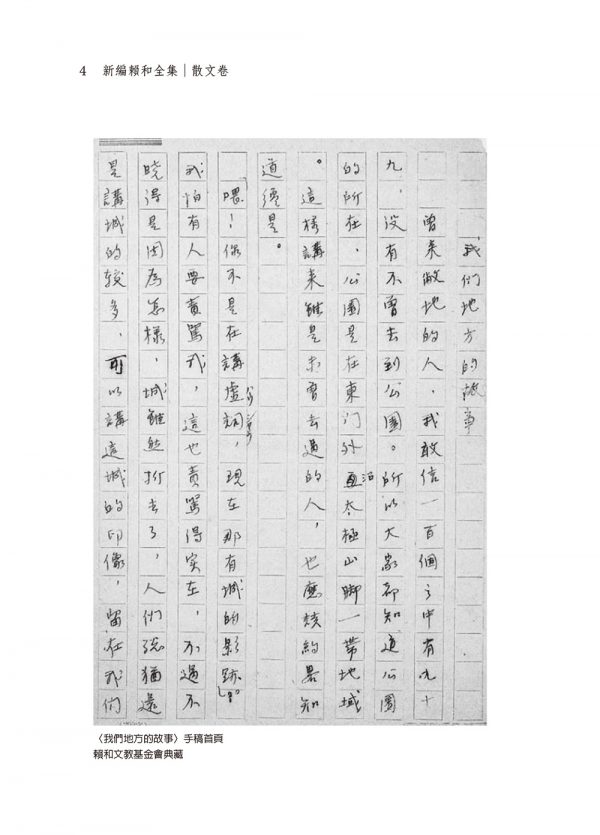 4 新編賴和全集｜散文卷
我們地方的故事
曾来敝地的人，我敢信一百個之中有九十
九，没有不曾去到公園。所以大家都知道公園
的所在，公園是在東门外 沿太極山脚一帶地域
。這樣講来雖是未曾去過的人，也應該約畧知
道纔是。
喂！你不是在講虚詞，現在那有城的影跡。
我怕有人要責駡我，這也責駡得实在，不過不
曉得是因為怎樣，城雖然折去了，人們總猶還
是講城的較多，可以講這城的印像，留在我们
〈我們地方的故事〉手稿首頁
賴和文教基金會典藏